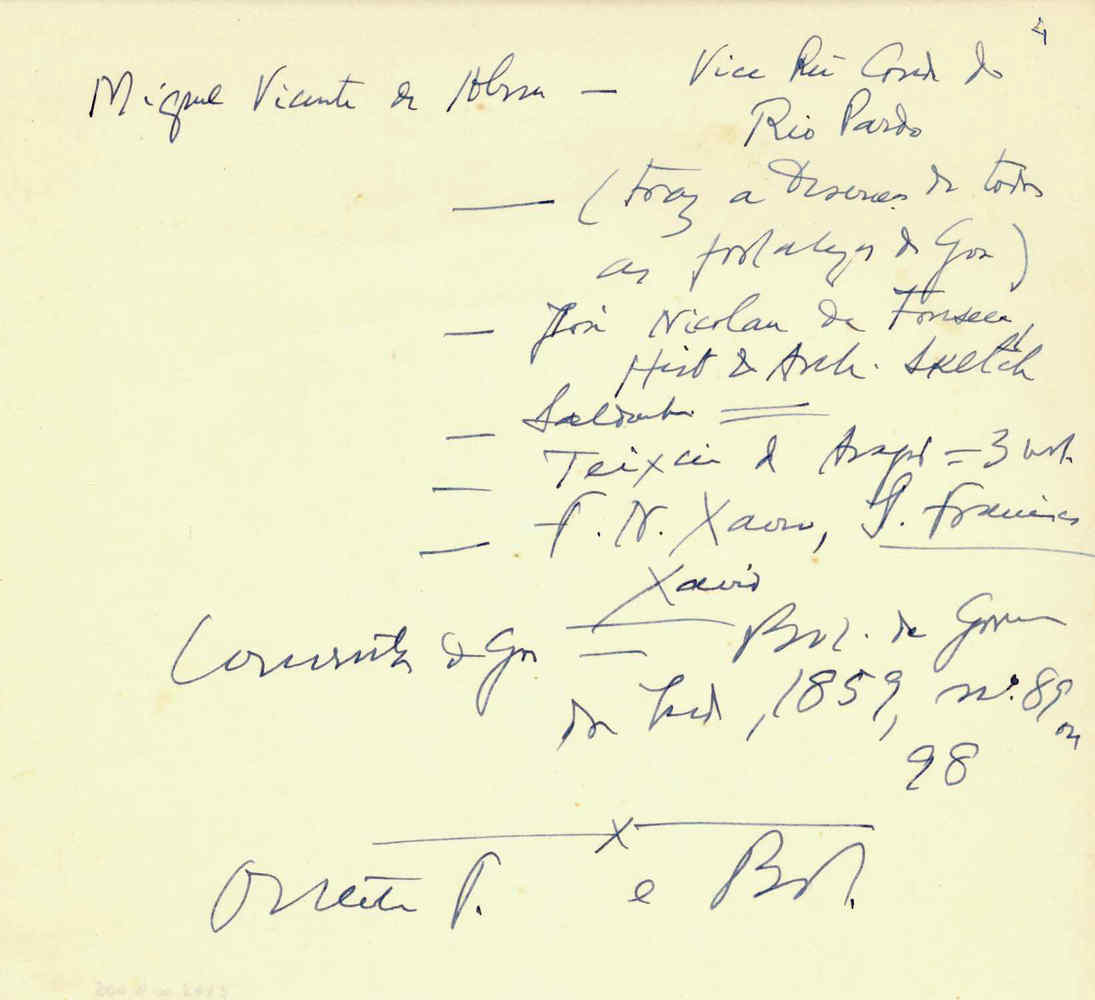 4
Miguel Vicente de Abreu — Vice Rei Conde do
Rio Pardo
— (traz a Descrição de todas
as fortalezas de Goa)
— José Nicolau da Fonseca,
Hist & Arch. Sketch
— Saldanha =
— Teixeira de Aragão = 3 vol.
— F. N. Xavier, S. Francisco
Xavier
Conventos de Goa — Bol. do Governo
da Ind, 1859, nº. 89 ou
98
x
P. e Bol.